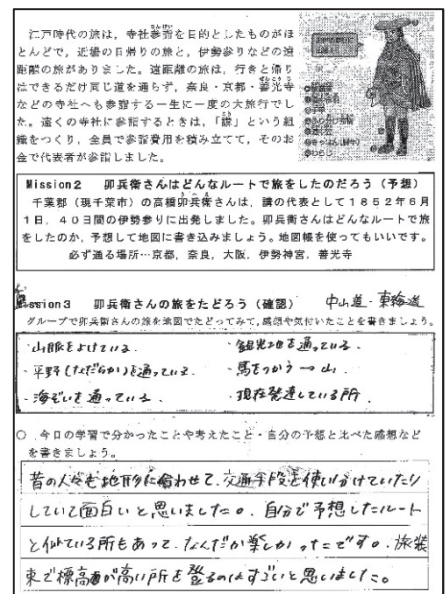 江戸時代の旅は，寺社参詣を目的としたものがほ
とんどで，近場の日帰りの旅と，伊勢参りなどの遠
距離の旅がありました。遠距離の旅は，行きと帰り
はできるだけ同じ道を通らず，奈良・京都・善光寺
などの寺社へも参詣する一生に一度の大旅行でし
た。遠くの寺社に参詣するときは，「講」という組
織をつくり，全員で参詣費用を積み立てて，そのお
金で代表者が参詣しました。
Mission2　卯兵衛さんはどんなルートで旅をしたのだろう（予想）
千葉郡（現千葉市）の高橋卯兵衛さんは，講の代表として１８５２年６月
１日，４０日間の伊勢参りに出発しました。卯兵衛さんはどんなルートで旅
をしたのか，予想して地図に書き込みましょう。地図帳を使ってもいいです。
必ず通る場所…京都，奈良，大阪，伊勢神宮，善光寺
Mission3　卯兵衛さんの旅をたどろう（確認）　中山道・東海道
グループで卯兵衛さんの旅を地図でたどってみて，感想や気付いたことを書きましょう。
・山脈をよけている.　・観光地を通っている.
・平野(なだらか)を通っている.　・馬をつかう→山
・海ぞいを通っている.　・現在発達している所.
○ 今日の学習で分かったことや考えたこと・自分の予想と比べた感想など
を書きましょう。
昔の人々も地形に合わせて、交通手段を使い分けていたり
していて面白いと思いました。自分で予想したルート
と似ている所もあって、なんだか楽しかったです。旅装
束で標高が高い所を登るのはすごいと思いました。